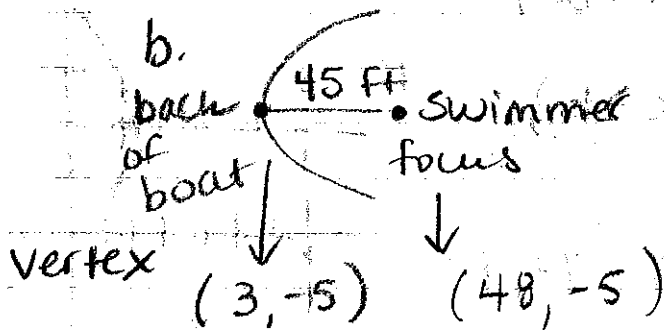 b.
back of boat
45 ft
swimmer
focus
vertex
(3,-5)
(48,-5)